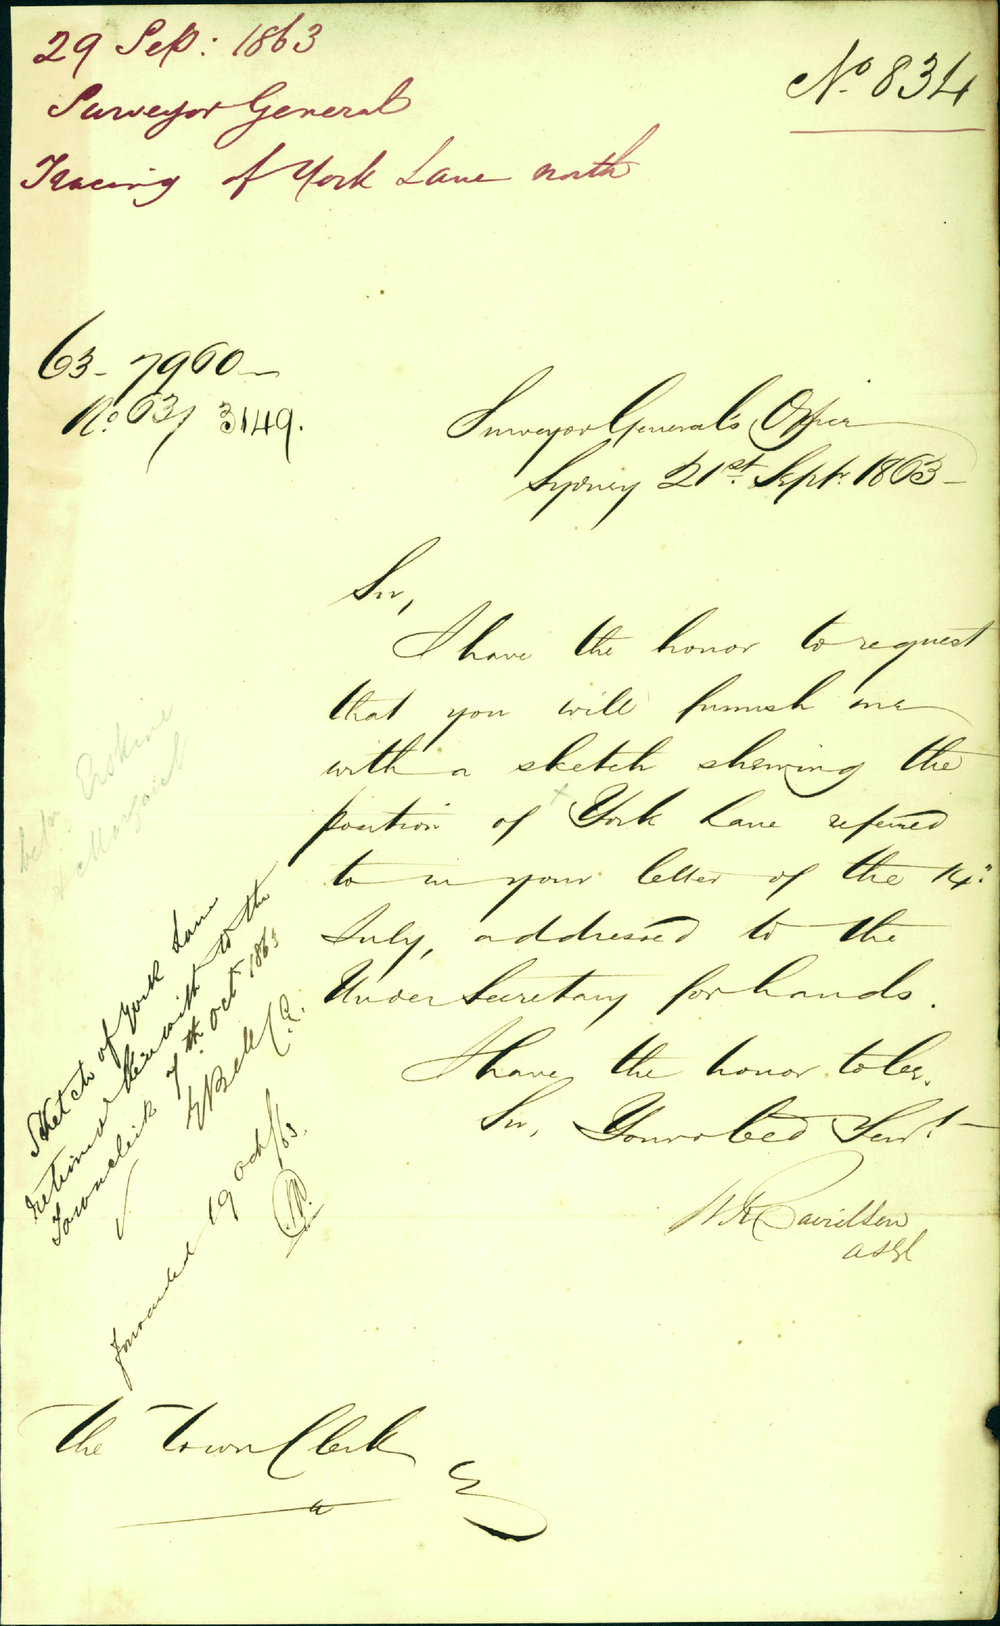 29 Sep: 1863
Surveyor General
Tracing of York Lane north
No. 834
63-7960-
No. 63/3149.
Surveyor General's Office
Sydney 21st. Septr. 1863-
Sir,
I have the honor to request
that you will furnish me
with a sketch shewing the
position of York Lane referred
to in your letter of the 14"
July, addressed to the
Under Secretary for Lands.
I have the honor to be,
Sir, Your obed Servt
W R Davidson
ASGl
betn. Erskine
& Margaret
Sketch of York Lane
returned herewith to the
Town Clerk 7th Oct 1863
E Bell C.E.
forwarded 19 Oct/63.
The Town Clerk